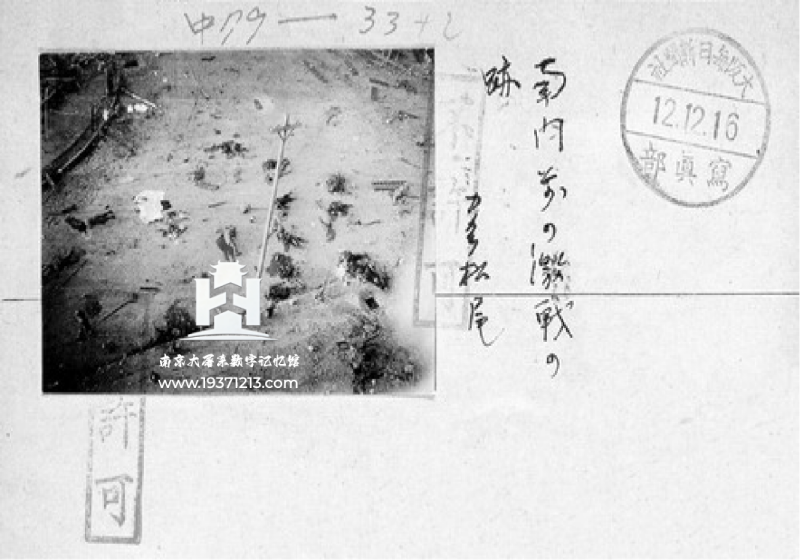 大阪毎日新聞社
12.12.16
寫眞部
南門前の激戦の
跡
松尾
不許可
南京大屠杀数字记忆馆
www.19371213.com
許可